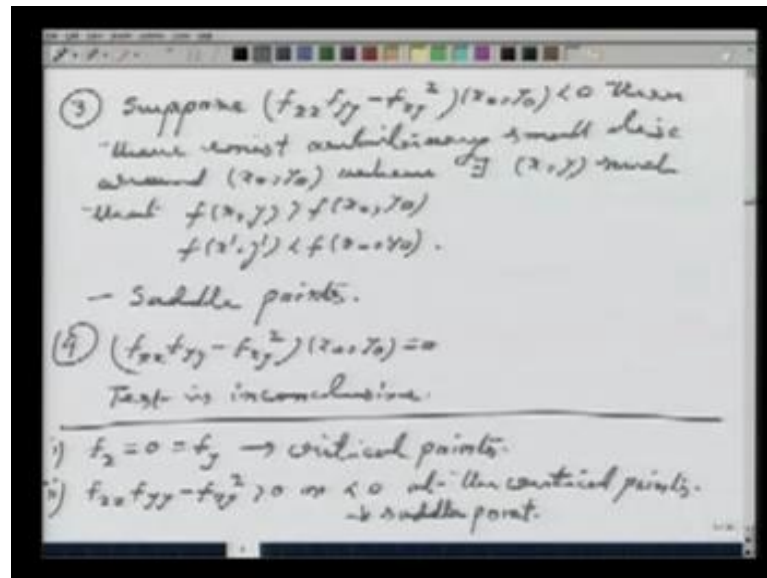 ③ Suppose (f_xx f_yy - f_xy²)(x₀, y₀) < 0 then
there exist arbitrary small disc
around (x₀, y₀) where ∃ (x, y) such
that f(x, y) > f(x₀, y₀)
f(x', y') < f(x₀, y₀).
— Saddle points.
④ (f_xx f_yy - f_xy²)(x₀, y₀) = 0
Test is inconclusive.
i) f_x = 0 = f_y → critical points.
ii) f_xx f_yy - f_xy² > 0 or < 0 at the critical points.
→ saddle point.